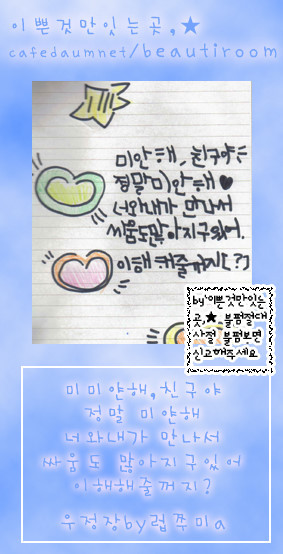 이쁜것만잇는곳,★
cafedaumnet/beautiroom
미안해, 친구야
정말미안해♥
너와내가 만나서
싸움도많아지구있어.
이해해줄꺼지?
by이쁜것만잇는
곳,★ 불펌절대
사절 불펌보면
신고해주세요
미미얀해,친구야
정말 미얀해
너와내가 만나서
싸움도 많아지구있어
이해해줄꺼지?
우정장by럽쭈미a